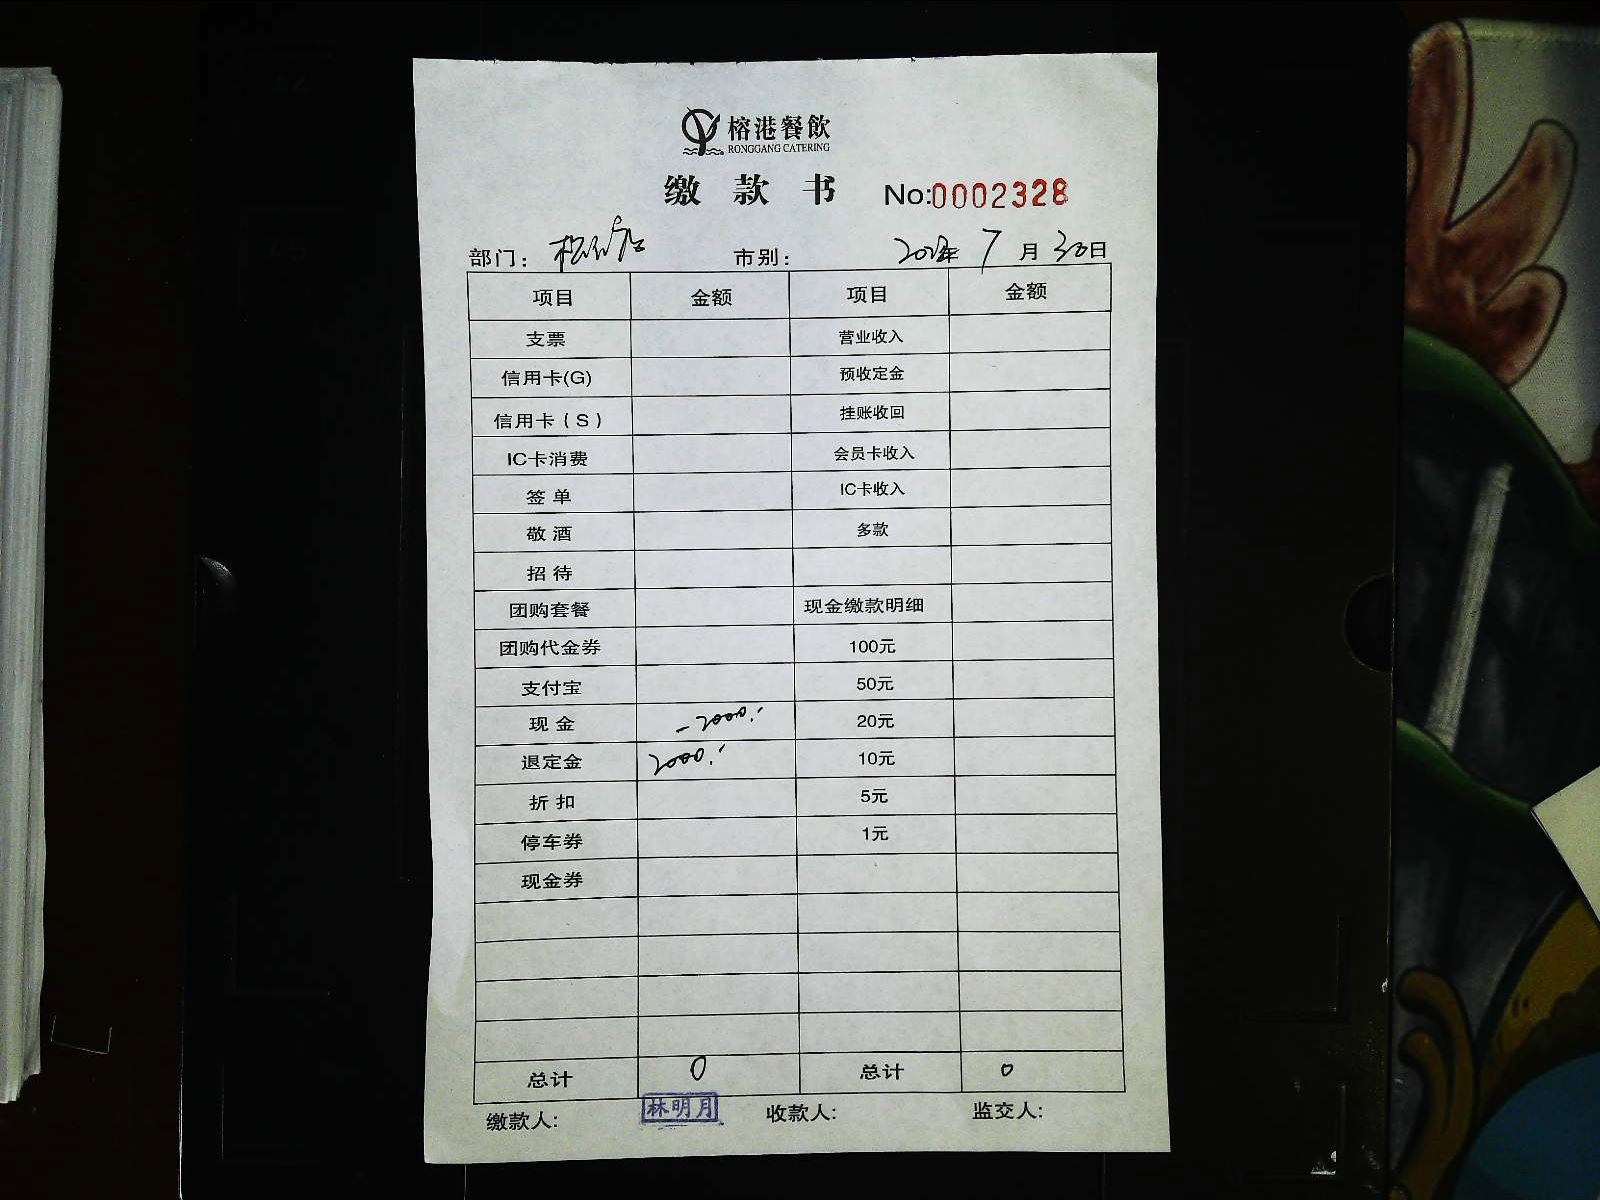 榕港餐飲
RONGGANG CATERING
缴 款 书 No:0002328
部门： 市别： 年 7 月 30日
项目 金额 项目 金额
支票 营业收入
信用卡(G) 预收定金
信用卡（S） 挂账收回
IC卡消费 会员卡收入
签 单 IC卡收入
敬 酒 多款
招 待
团购套餐 现金缴款明细
团购代金券 100元
支付宝 50元
现 金 -2000. 20元
退定金 2000. 10元
折 扣 5元
停车券 1元
现金券
总计 0 总计 0
缴款人: 林明月 收款人: 监交人: